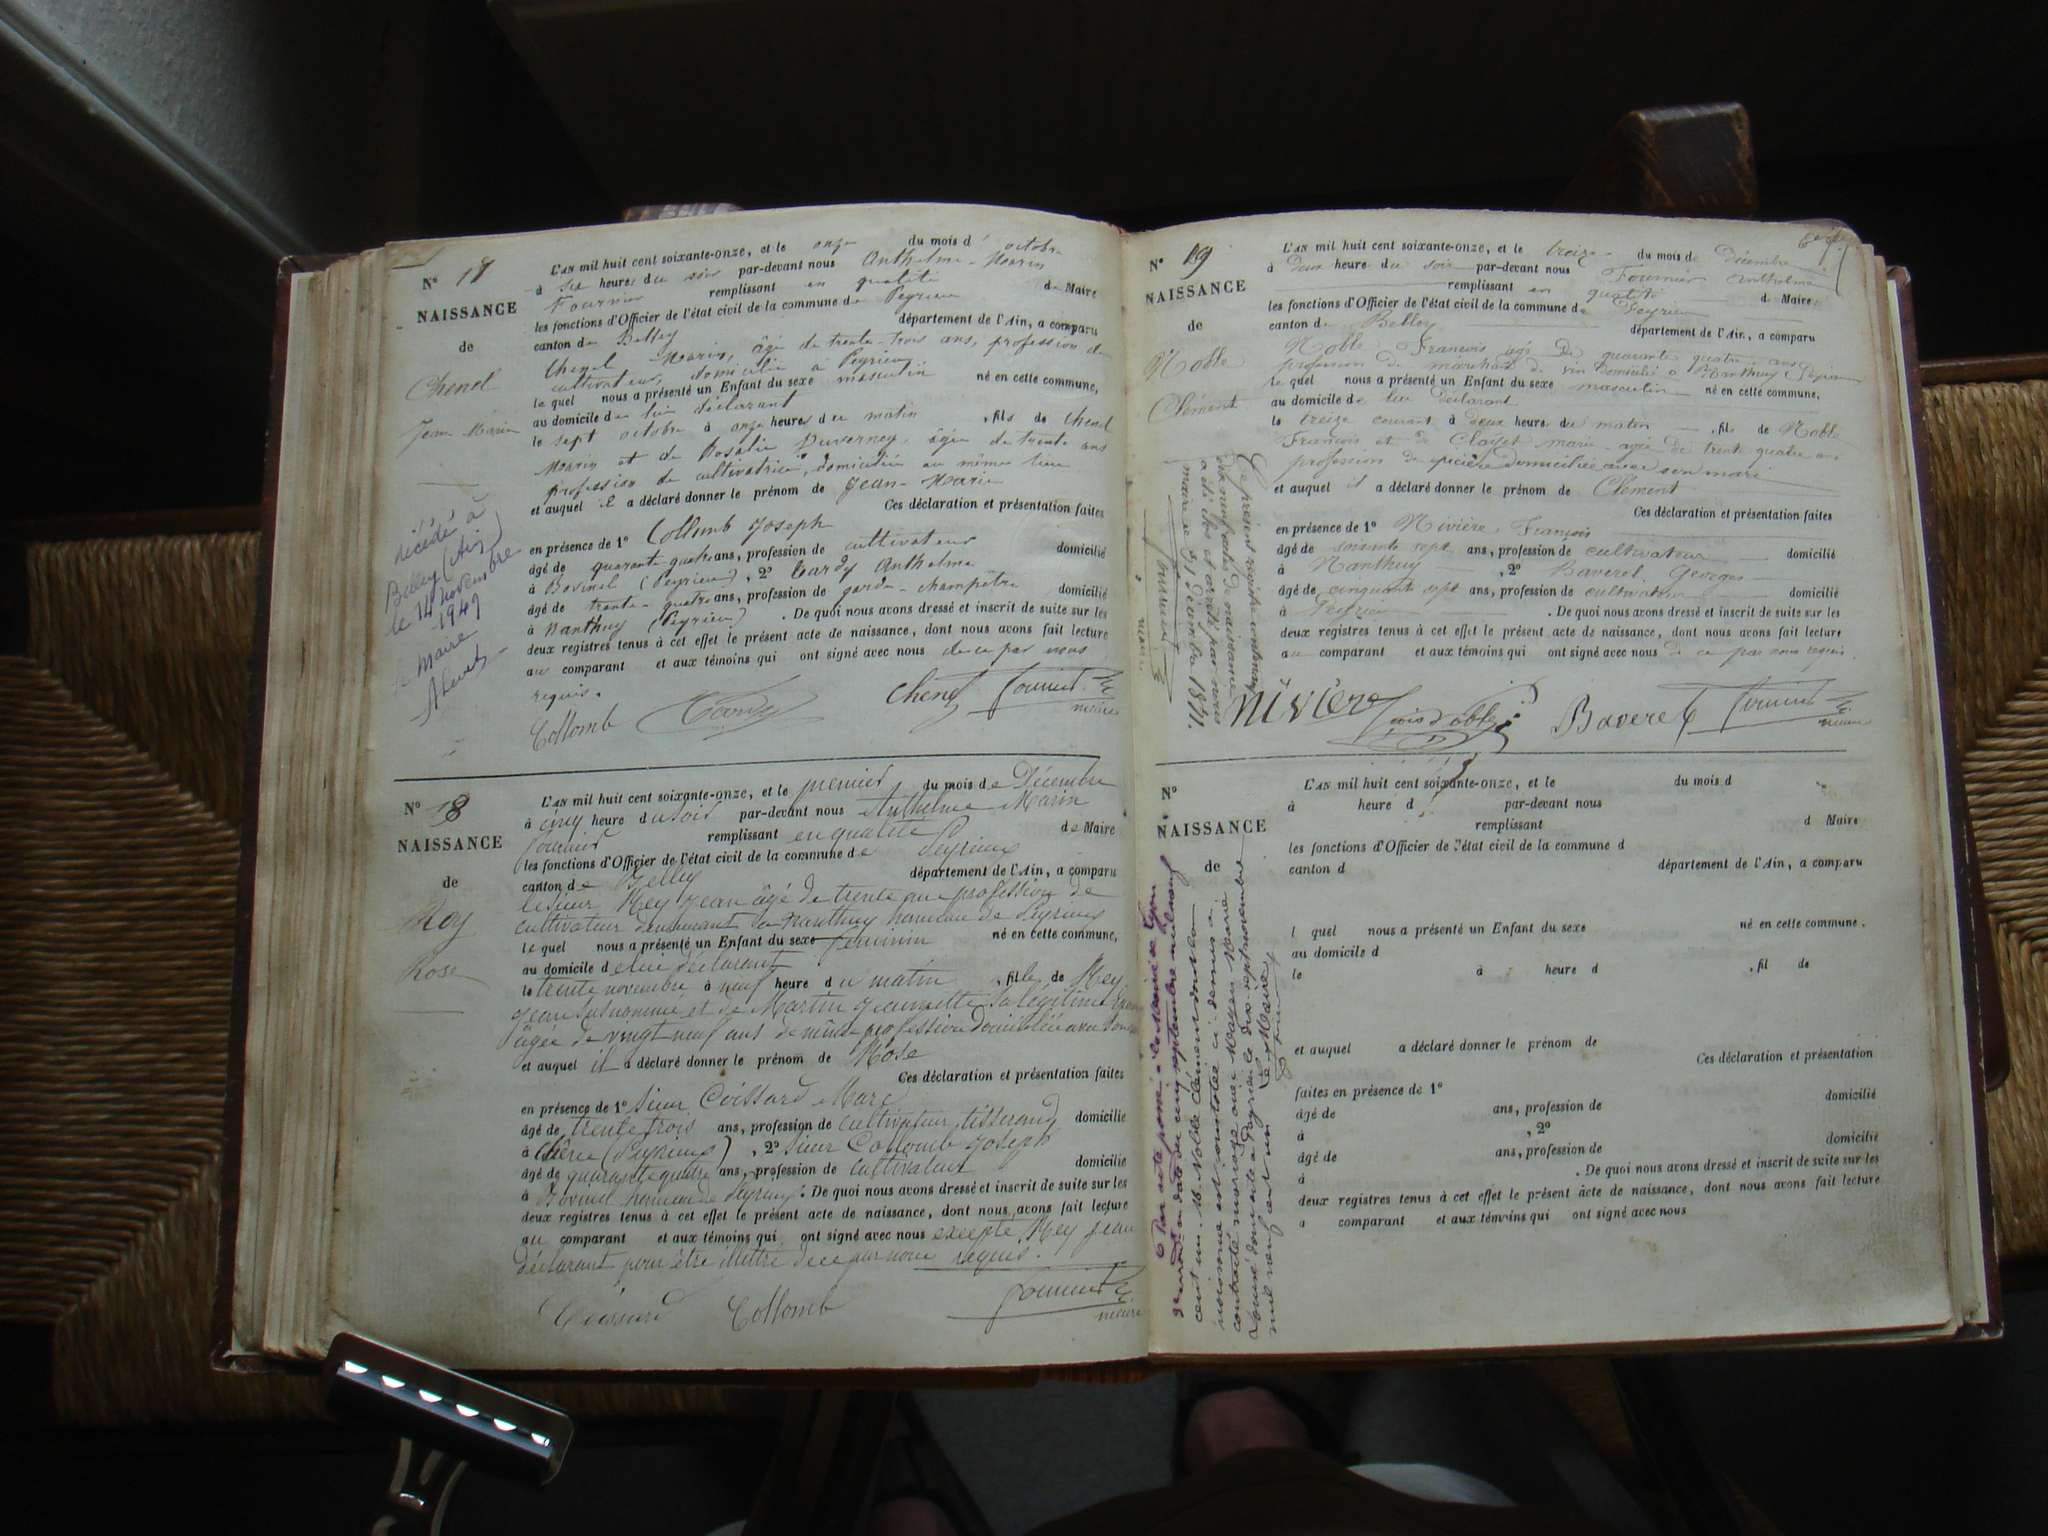 N° 17
NAISSANCE
de
Chenel
Jean-Marie
décédé à
Belley (Ain)
le 14 novembre
1949
Le Maire
L'AN mil huit cent soixante-onze, et le onze du mois d' octobre
à six heures du soir par-devant nous Anthelme-Marin
Fournier remplissant en qualité de Maire
les fonctions d'Officier de l'état civil de la commune de Peyrieu
canton de Belley département de l'Ain, a comparu
Chenel Marin, âgé de trente-trois ans, profession de
cultivateur, domicilié à Peyrieu
le quel nous a présenté un Enfant du sexe masculin né en cette commune,
au domicile de lui déclarant
le sept octobre à onze heures du matin, fils de Chenel
Marin et de Rosalie Duverney, âgée de trente ans
profession de cultivatrice, domiciliée au même lieu
et auquel il a déclaré donner le prénom de Jean-Marie
Ces déclaration et présentation faites
en présence de 1° Collomb Joseph
âgé de quarante quatre ans, profession de cultivateur domicilié
à Bovinel (Peyrieu), 2° Tardy Anthelme
âgé de trente-quatre ans, profession de garde-champêtre domicilié
à Nanthuy (Peyrieu). De quoi nous avons dressé et inscrit de suite sur les
deux registres tenus à cet effet le présent acte de naissance, dont nous avons fait lecture
au comparant et aux témoins qui ont signé avec nous de ce par nous
requis.
Collomb Tardy Chenel Fournier
maire
N° 18
NAISSANCE
de
Rey
Rose
L'AN mil huit cent soixante-onze, et le premier du mois de Décembre
à cinq heure du soir par-devant nous Anthelme Marin
Fournier remplissant en qualité de Maire
les fonctions d'Officier de l'état civil de la commune de Peyrieux
canton de Belley département de l'Ain, a comparu
le sieur Rey Jean âgé de trente ans profession de
cultivateur demeurant à Nanthuy hameau de Peyrieux
le quel nous a présenté un Enfant du sexe féminin né en cette commune,
au domicile de lui déclarant
le trente novembre à neuf heure du matin, fille de Rey
Jean susnommé et de Martin Jeannette sa légitime
âgée de vingt neuf ans de même profession domiciliée avec son
et auquel il a déclaré donner le prénom de Rose
Ces déclaration et présentation faites
en présence de 1° sieur Coissard Marc
âgé de trente trois ans, profession de cultivateur tisserand domicilié
à (Peyrieux), 2° sieur Collomb Joseph
âgé de quarante quatre ans, profession de cultivateur domicilié
à Bovinel hameau de Peyrieux. De quoi nous avons dressé et inscrit de suite sur les
deux registres tenus à cet effet le présent acte de naissance, dont nous avons fait lecture
au comparant et aux témoins qui ont signé avec nous excepté Rey Jean
déclarant pour être illettré de ce par nous requis.
Coissard Collomb Fournier
maire
N° 19
NAISSANCE
de
Noble
Clément
L'AN mil huit cent soixante-onze, et le treize du mois de Décembre
à deux heure du soir par-devant nous Fournier Anthelme
remplissant en qualité d Maire
les fonctions d'Officier de l'état civil de la commune de Peyrieu
canton de Belley département de l'Ain, a comparu
Noble François âgé de quarante quatre ans
profession de marchand de vin domicilié à Nanthuy (Peyrieu
le quel nous a présenté un Enfant du sexe masculin né en cette commune,
au domicile de lui déclarant
le treize courant à deux heure du matin, fils de Noble
François et de Clayet marie agée de trente quatre ans
profession de épicière domiciliée avec son mari
et auquel il a déclaré donner le prénom de Clément
Ces déclaration et présentation faites
en présence de 1° Nivière François
âgé de soixante sept ans, profession de cultivateur domicilié
à Nanthuy, 2° Baveret Georges
âgé de cinquante sept ans, profession de cultivateur domicilié
à Peyrieu. De quoi nous avons dressé et inscrit de suite sur les
deux registres tenus à cet effet le présent acte de naissance, dont nous avons fait lecture
au comparant et aux témoins qui ont signé avec nous de ce par nous requis.
Nivière Noble Baveret Fournier
maire
Le présent registre contenant
dix neuf actes de naissance
a été clos et arrêté par nous
maire ce 31 Décembre 1871.
Fournier
maire
N°
NAISSANCE
de
L'AN mil huit cent soixante-onze, et le du mois d
à heure d par-devant nous
remplissant d Maire
les fonctions d'Officier de l'état civil de la commune d
canton d département de l'Ain, a comparu
l quel nous a présenté un Enfant du sexe né en cette commune.
au domicile d
le à heure d, fil de
et auquel a déclaré donner le prénom de
Ces déclaration et présentation
faites en présence de 1° domicilié
âgé de ans, profession de
à, 2° domicilié
âgé de ans, profession de
à. De quoi nous avons dressé et inscrit de suite sur les
deux registres tenus à cet effet le présent acte de naissance, dont nous avons fait lecture
a comparant et aux témoins qui ont signé avec nous
Par acte passé à la Mairie de Lyon
en date du cinq septembre mil neuf
cent un. M. Noble Clément dont la
naissance est constatée ci-dessus a
contracté mariage avec Mayen Marie
Louise domiciliée à Peyrieu le dix sept novembre
mil neuf cent un Le Maire